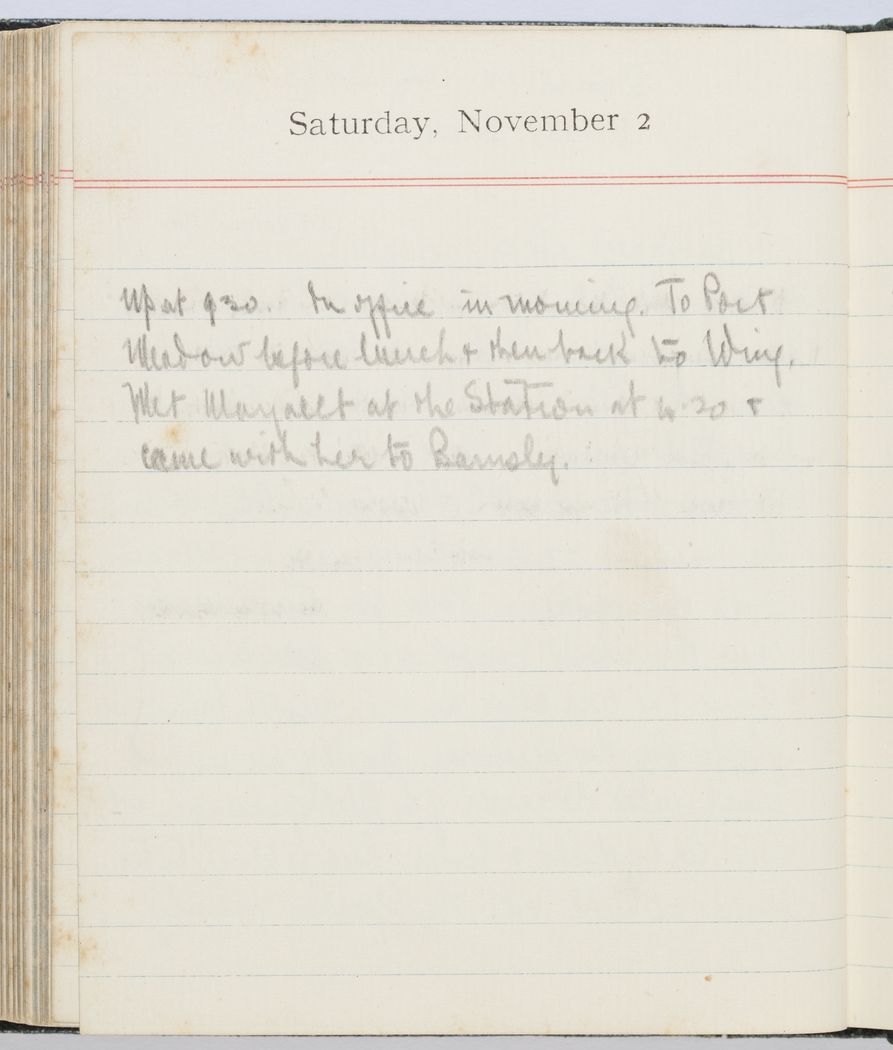 Saturday, November 2
Up at 9 30. In office in morning. To Port
Meadow before lunch & then back to Wing.
Met at the Station at 4.20 &
came with her to Barnsley.